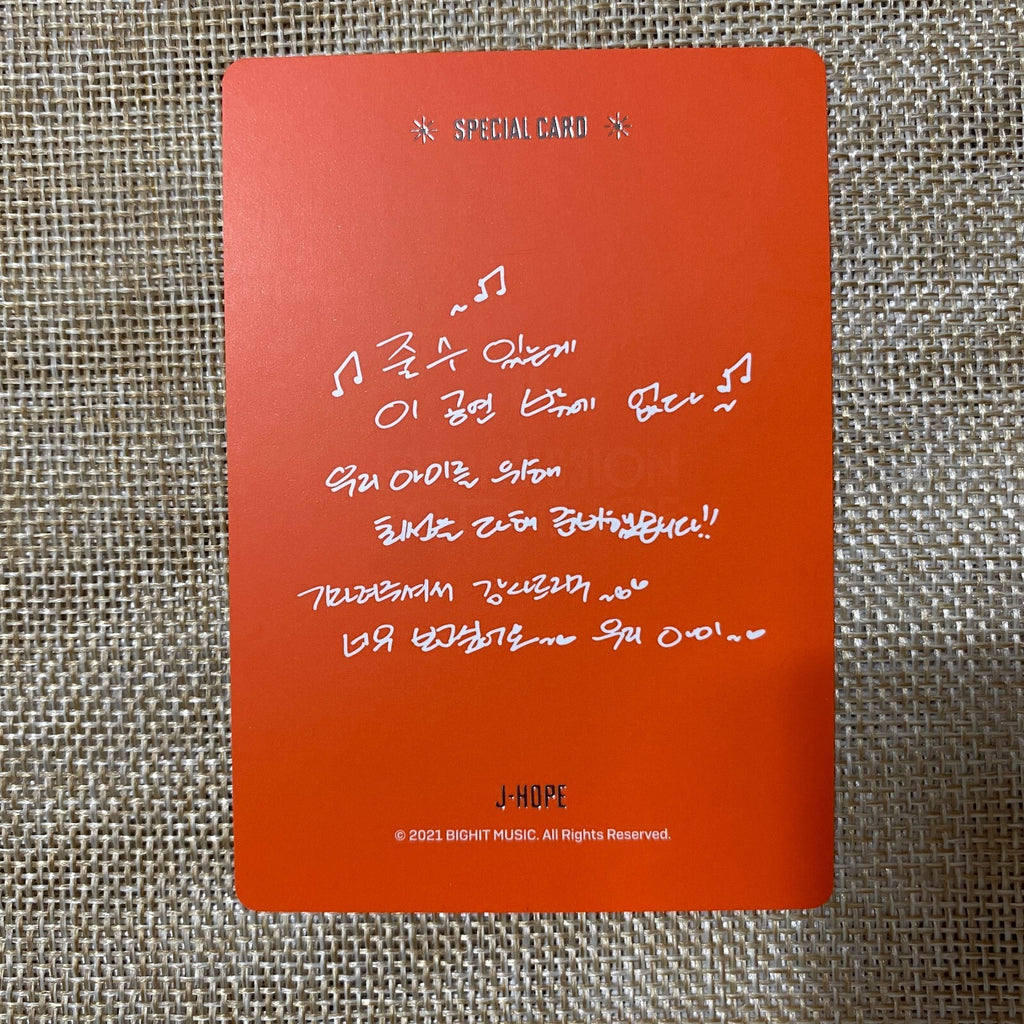 SPECIAL CARD
~♫
♫ 줄 수 있는게
이 공연 밖에 없다 ♫~
우리 아미를 위해
최선을 다해 준비했습니다!!
기다려주셔서 감사드리며 ~
너무 보고싶어요~ 우리 아미~
J-HOPE
© 2021 BIGHIT MUSIC. All Rights Reserved.